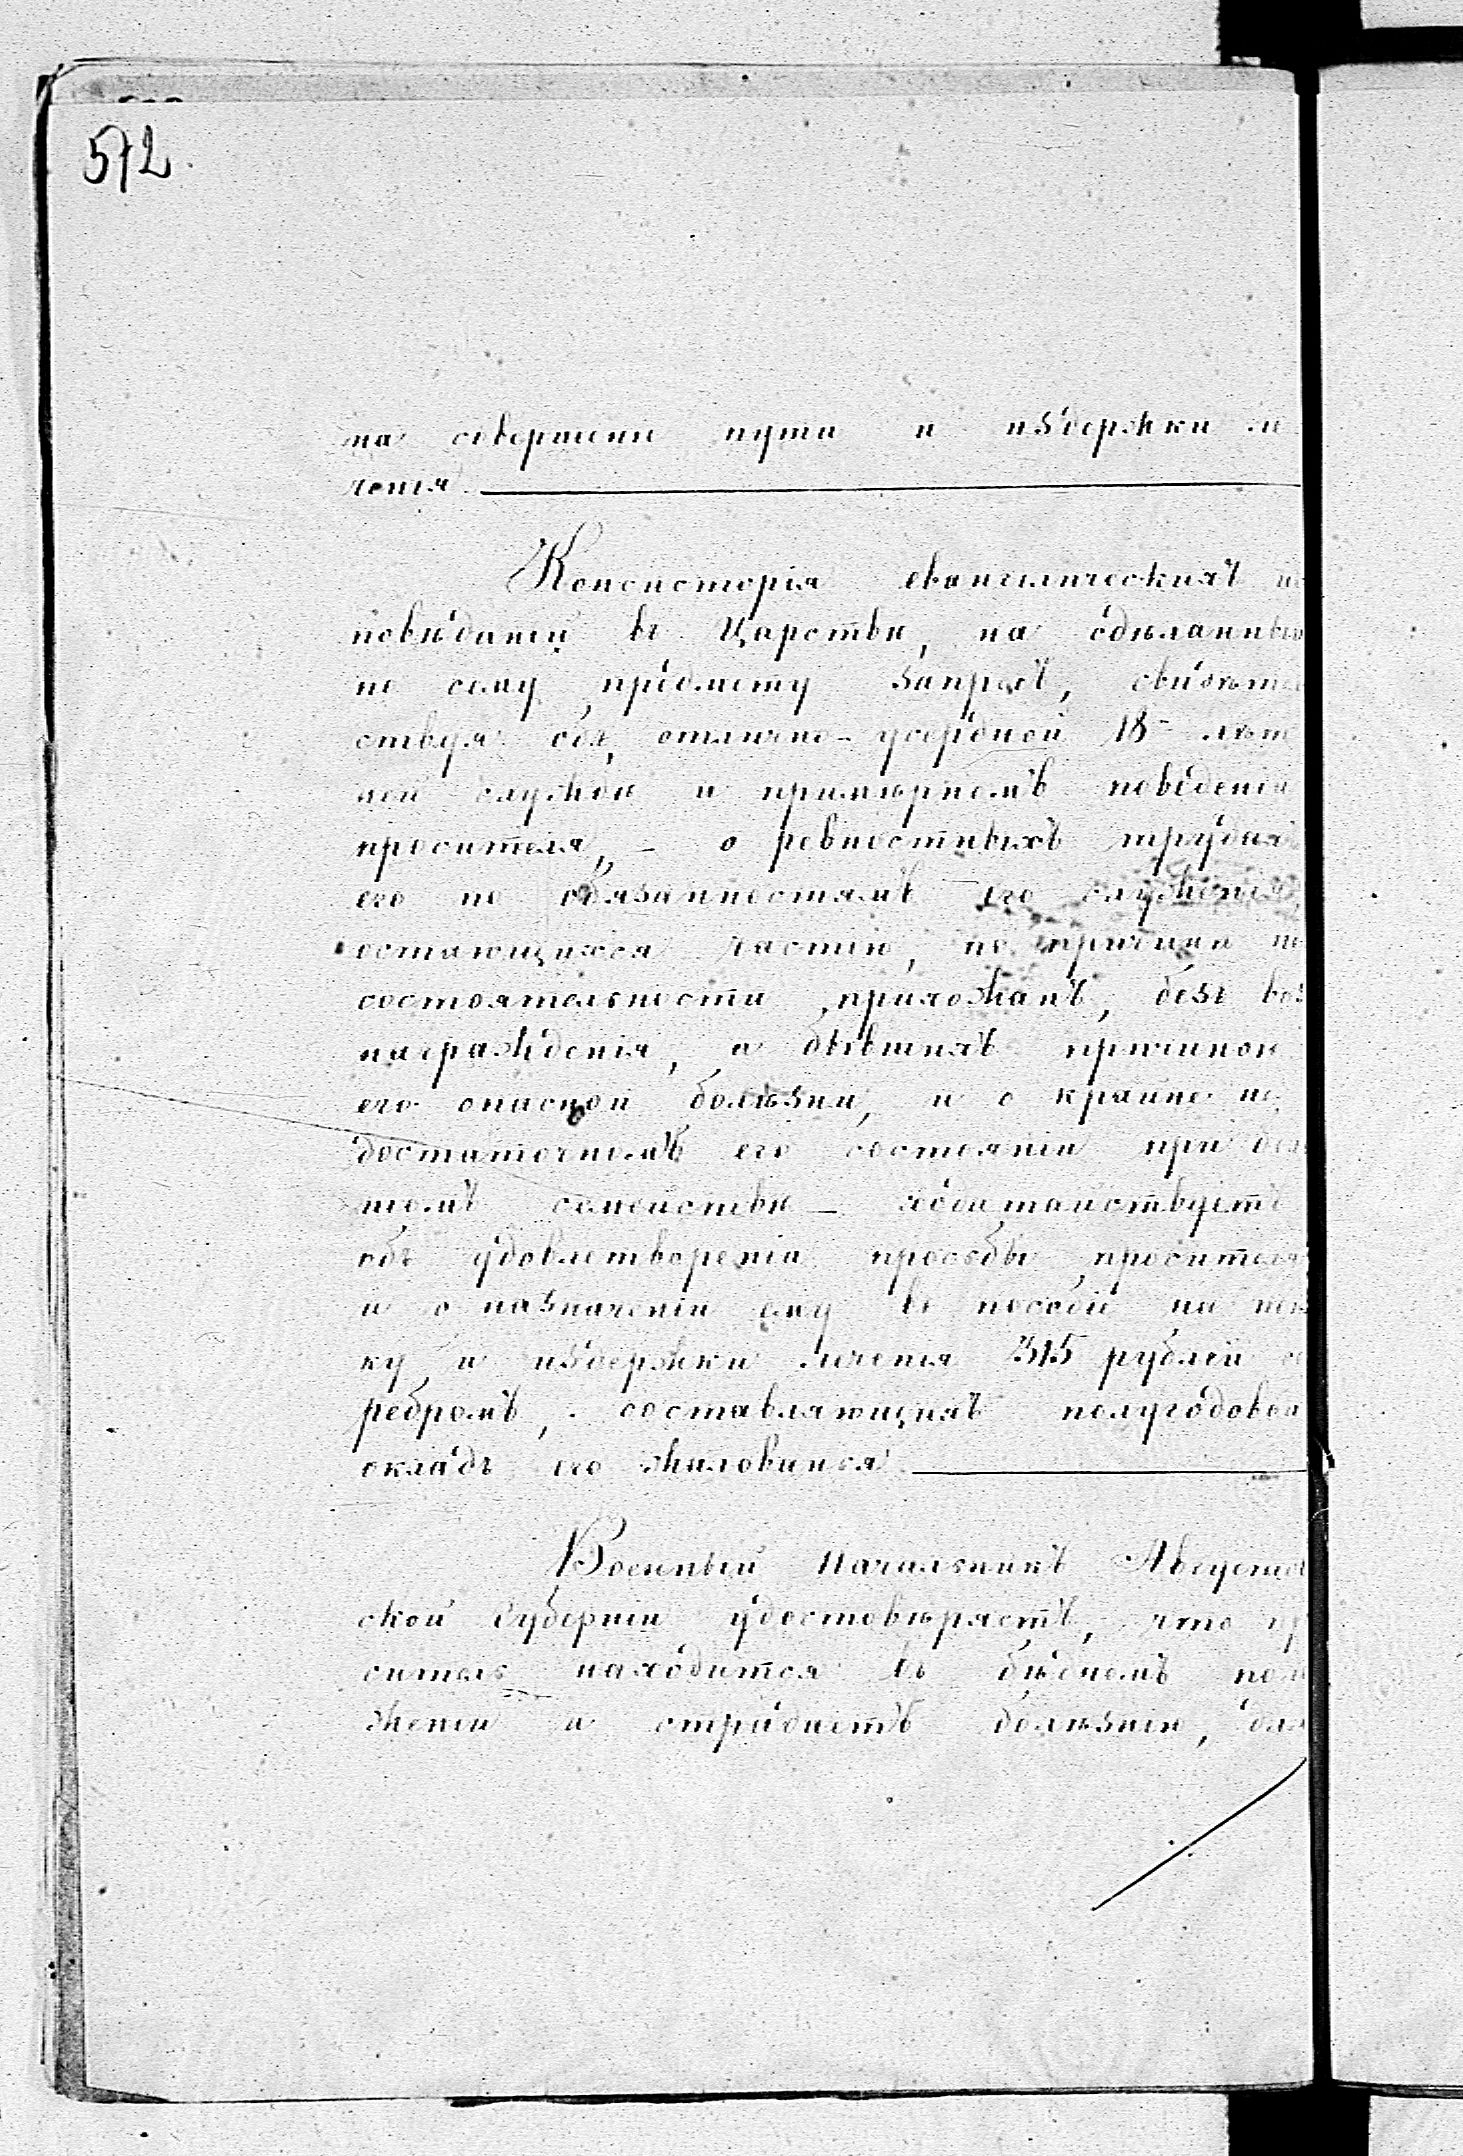 572.
на совершеніе пути и издержки ле
ченія
Консисторія евангелическихъ ис
повѣданій въ Царствѣ, на сдѣланный
по сему предмету запросъ, свидѣтел
ствуя объ отлично-усердной 18-лѣт
ней службѣ и примѣрномъ поведеніи
просителя, — о ревностныхъ трудахъ
его по обязанностямъ его служенія,
остающихся частію, по причинѣ не
состоятельности прихожанъ, безъ воз
награжденія, а бывшихъ причиною
его опасной болѣзни, и о крайне не
достаточномъ его состояніи при
семействѣ — ходатайствуетъ
объ удовлетвореніи просьбы просителя
и о назначеніи ему въ пособіе на поѣзд
ку и издержки леченія 315 рублей се
ребромъ, составляющихъ полугодовой
окладъ его жалованья
Военный Начальникъ Августов
ской Губерніи удостовѣряетъ, что про
ситель находится въ бѣдномъ поло
женіи и страдаетъ болѣзнію, для